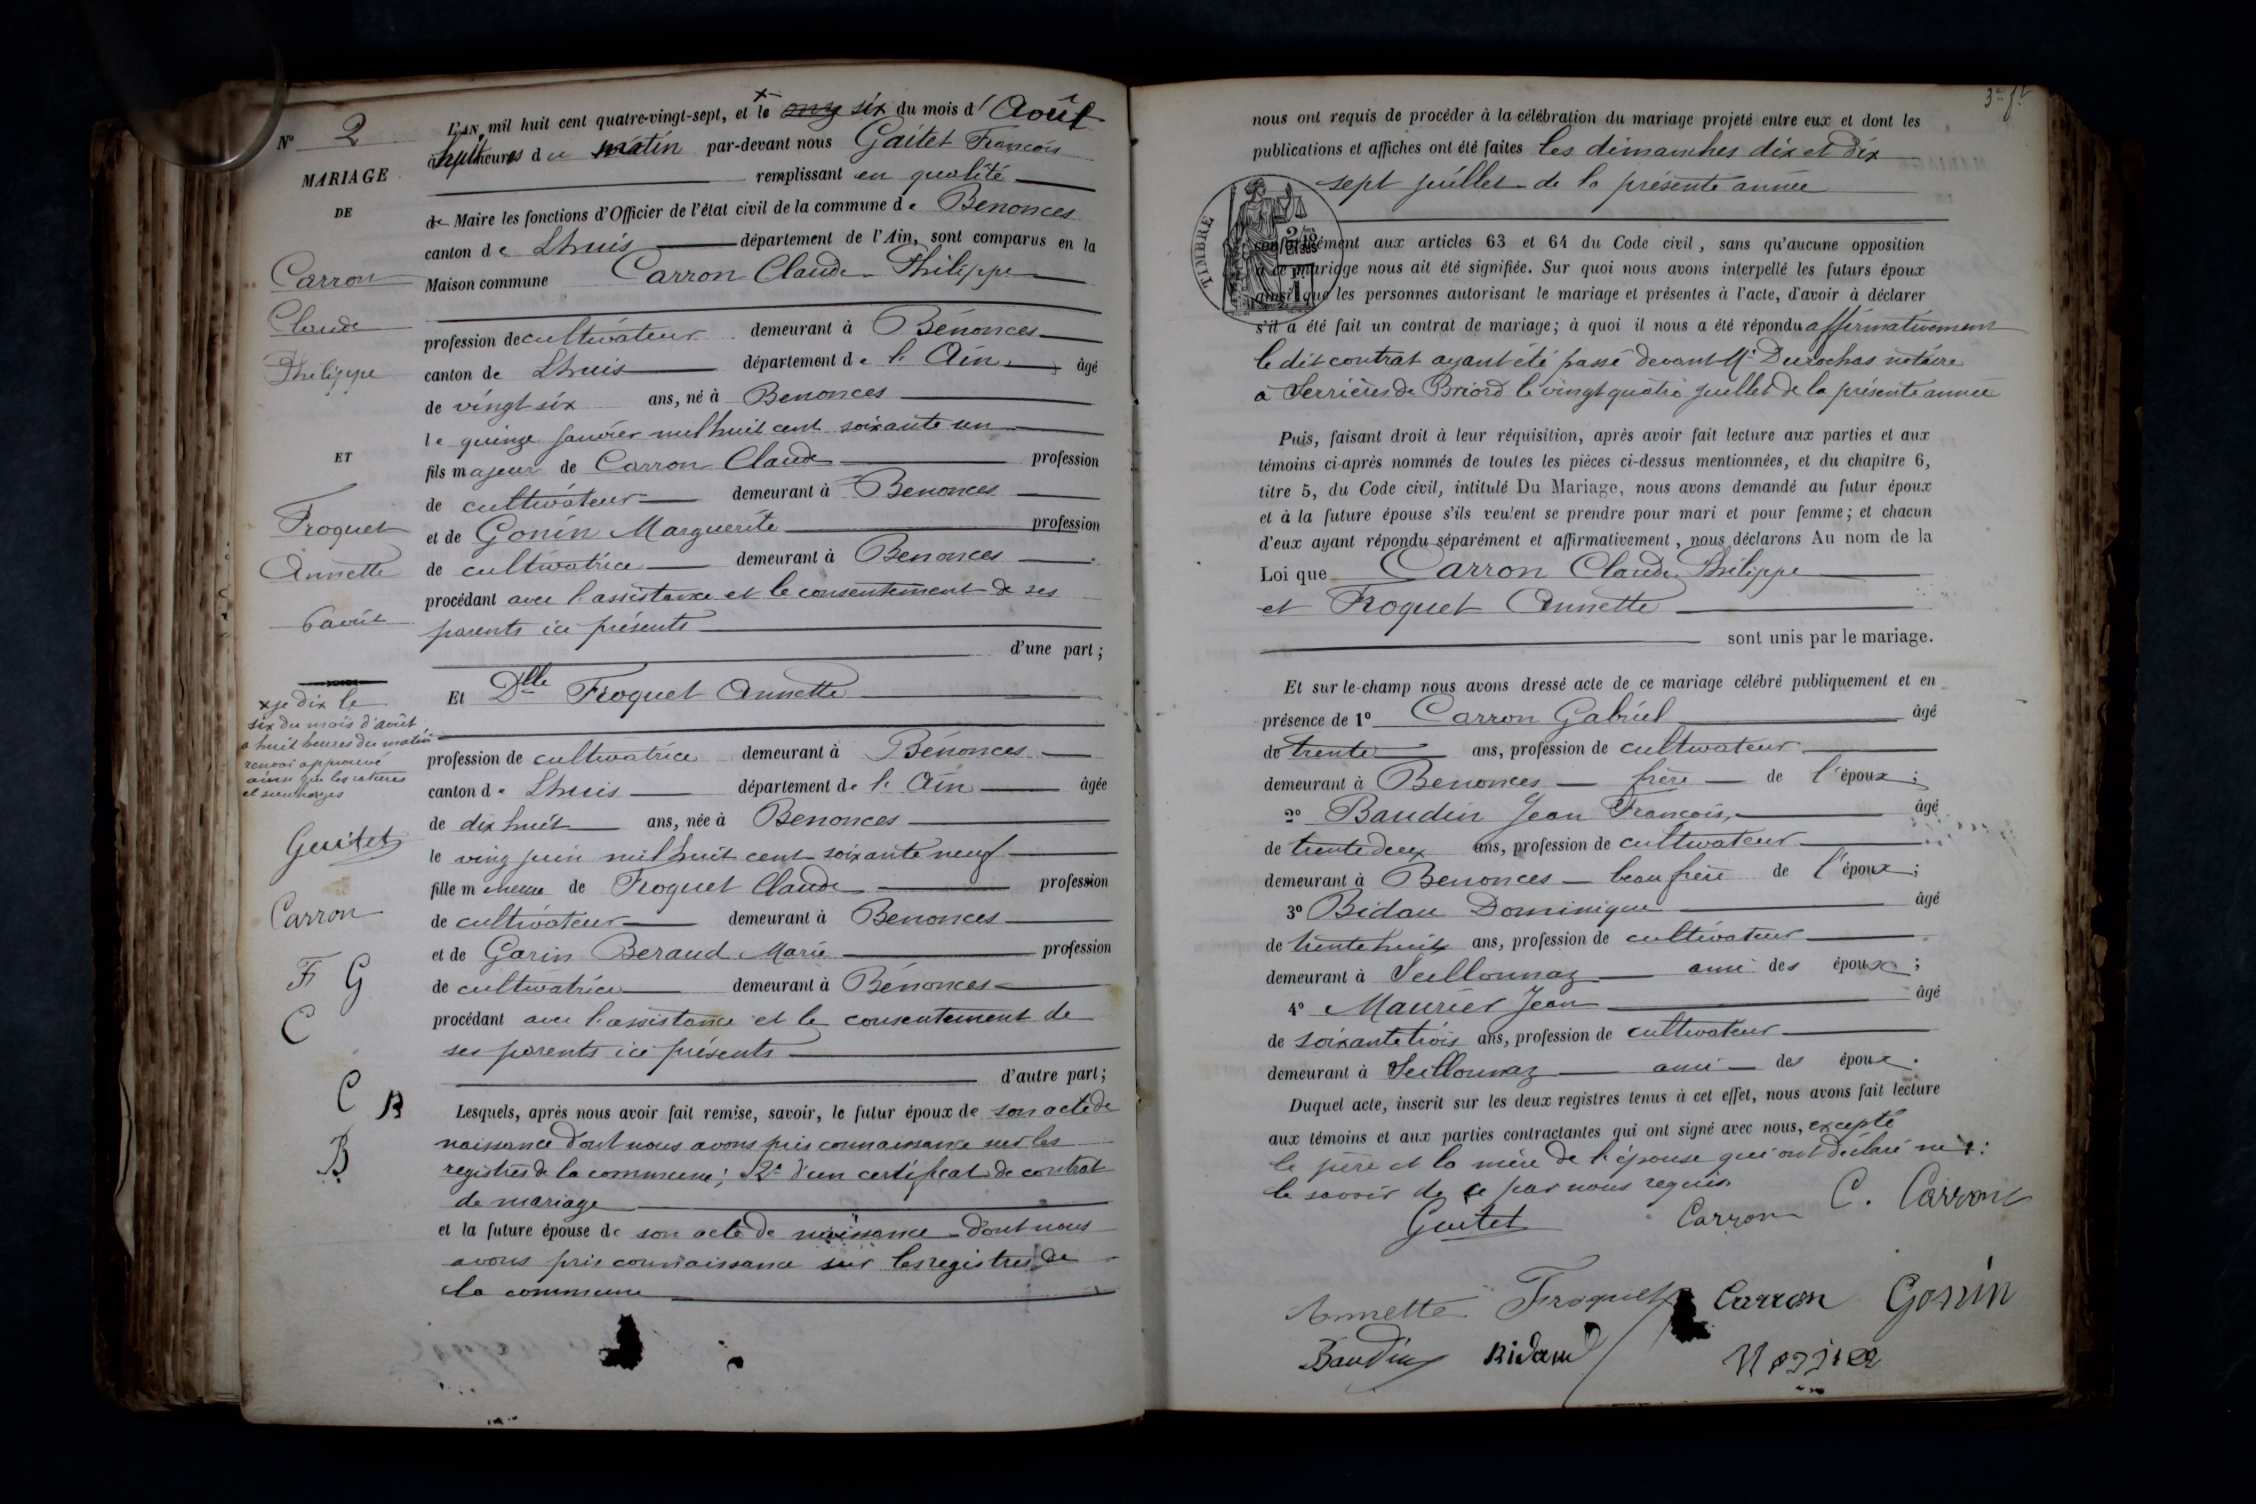 N° 2
MARIAGE
DE
Carron
Claude
Philippe
ET
Froquet
Annette
6 août
x je dix le
six du mois d'août
a huit heures du matin
renvoi approuvé
ainsi que les ratures
et surcharges
Guitet
Carron
F G
C
C B
B
L'AN mil huit cent quatre-vingt-sept, et le onze six du mois d'Août
à huit heures du matin par-devant nous Gaitet François
remplissant en qualité
de Maire les fonctions d'Officier de l'état civil de la commune de Benonces
canton de Lhuis département de l'Ain, sont comparus en la
Maison commune Carron Claude Philippe
profession de cultivateur demeurant à Bénonces
canton de Lhuis département de l'Ain, âgé
de vingt six ans, né à Benonces
le quinze janvier mil huit cent soixante un
fils majeur de Carron Claude profession
de cultivateur demeurant à Benonces
et de Gonin Marguerite profession
de cultivatrice demeurant à Benonces
procédant avec l'assistance et le consentement de ses
parents ici présents
d'une part;
Et Dlle Froquet Annette
profession de cultivatrice demeurant à Bénonces
canton de Lhuis département de l'Ain âgée
de dix huit ans, née à Benonces
le ving juin mil huit cent soixante neuf
fille mineure de Froquet Claude profession
de cultivateur demeurant à Benonces
et de Garin Beraud Marie profession
de cultivatrice demeurant à Bénonces
procédant avec l'assistance et le consentement de
ses parents ici présents
d'autre part;
Lesquels, après nous avoir fait remise, savoir, le futur époux de son acte de
naissance dont nous avons pris connaissance sur les
registres de la commune; 2° d'un certificat de contrat
de mariage
et la future épouse de son acte de naissance dont nous
avons pris connaissance sur les registres de
la commune
nous ont requis de procéder à la célébration du mariage projeté entre eux et dont les
publications et affiches ont été faites les dimanches dix et dix
sept juillet de la présente année
TIMBRE
conformément aux articles 63 et 64 du Code civil, sans qu'aucune opposition
à ce mariage nous ait été signifiée. Sur quoi nous avons interpellé les futurs époux
ainsi que les personnes autorisant le mariage et présentes à l'acte, d'avoir à déclarer
s'il a été fait un contrat de mariage; à quoi il nous a été répondu affirmativement
le dit contrat ayant été passé devant Me Durochas notaire
à Serrières de Briord le vingt quatre juillet de la présente année
Puis, faisant droit à leur réquisition, après avoir fait lecture aux parties et aux
témoins ci-après nommés de toutes les pièces ci-dessus mentionnées, et du chapitre 6,
titre 5, du Code civil, intitulé Du Mariage, nous avons demandé au futur époux
et à la future épouse s'ils veulent se prendre pour mari et pour femme; et chacun
d'eux ayant répondu séparément et affirmativement, nous déclarons Au nom de la
Loi que Carron Claude Philippe
et Froquet Annette
sont unis par le mariage.
Et sur-le-champ nous avons dressé acte de ce mariage célébré publiquement et en
présence de 1° Carron Gabriel âgé
de trente ans, profession de cultivateur
demeurant à Benonces frère de l'époux;
2° Baudin Jean François, âgé
de trente deux ans, profession de cultivateur
demeurant à Benonces beau frère de l'époux;
3° Bidau Dominique âgé
de trente huit ans, profession de cultivateur
demeurant à Seillonnaz ami des époux;
4° Maurier Jean âgé
de soixante trois ans, profession de cultivateur
demeurant à Seillonnaz ami des époux.
Duquel acte, inscrit sur les deux registres tenus à cet effet, nous avons fait lecture
aux témoins et aux parties contractantes qui ont signé avec nous, excepté
le père et la mère de l'épouse qui ont déclaré ne
le savoir de ce par nous requis
Guitet Carron C. Carron
Annette Froquet Carron Gonin
Baudin Bidaud